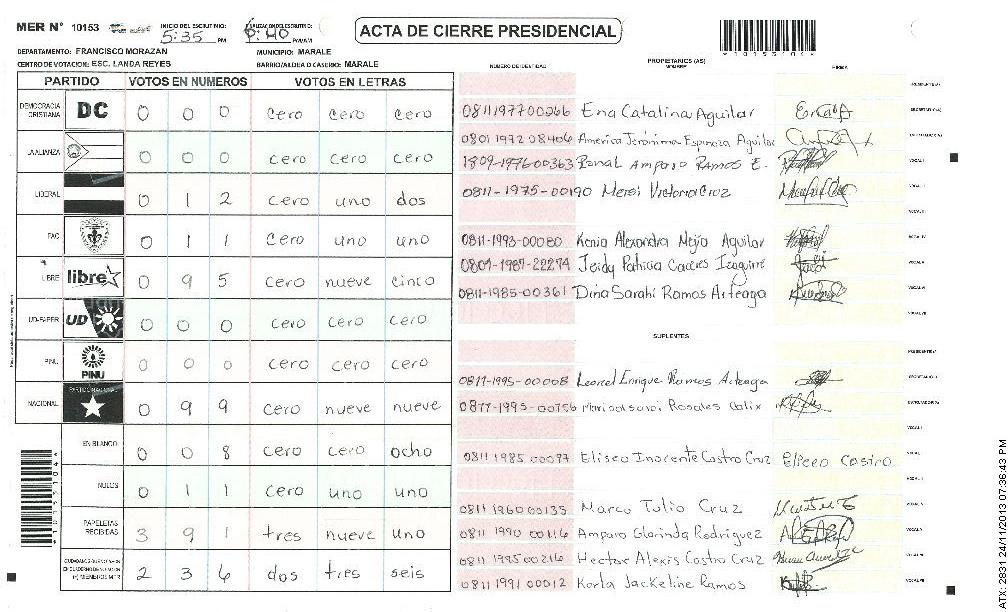 MER N° 10153 INICIO DEL ESCRUTINIO: 5:35 PM FINALIZACION DEL ESCRUTINIO: 6:40 PM/AM
ACTA DE CIERRE PRESIDENCIAL
DEPARTAMENTO: FRANCISCO MORAZAN MUNICIPIO: MARALE
CENTRO DE VOTACION: ESC. LANDA REYES BARRIO/ALDEA O CASERIO: MARALE
PARTIDO VOTOS EN NUMEROS VOTOS EN LETRAS
DEMOCRACIA CRISTIANA DC 0 0 0 cero cero cero
LA ALIANZA 0 0 0 cero cero cero
LIBERAL 0 1 2 cero uno dos
PAC 0 1 1 cero uno uno
LIBRE libre 0 9 5 cero nueve cinco
UD-FAPER UD 0 0 0 cero cero cero
PINU PINU 0 0 0 cero cero cero
NACIONAL PARTIDO NACIONAL 0 9 9 cero nueve nueve
EN BLANCO 0 0 8 cero cero ocho
NULOS 0 1 1 cero uno uno
PAPELETAS RECIBIDAS 3 9 1 tres nueve uno
2 3 6 dos tres seis
NUMERO DE IDENTIDAD PROPIETARIOS (AS) NOMBRE FIRMA
PRESIDENTE(A)
0811197700266 Ena Catalina Aguilar SECRETARIO(A)
0801 1972 08406 America Jeronima Espinoza Aguilar
1809-1976-00363 Ronal Amparo Ramos E. VOCAL I
0811-1975-00190 Mersi Victoria Cruz VOCAL II
VOCAL III
0811-1993-00080 Kenia Alexandra Mejia Aguilar VOCAL IV
0801-1987-22274 Jeidy Patricia Caceres Izaguirre VOCAL V
0811-1985-00361 Dina Sarahi Ramos Arteaga VOCAL VI
VOCAL VII
SUPLENTES
PRESIDENTE(A)
0811-1995-00008 Leonel Enrique Ramos Arteaga SECRETARIO(A)
0811-1995-00756 Rosales Calix ESCRUTADOR(A)
VOCAL I
0811 1985 00097 Eliseo Inocente Castro Cruz Eliseo Castro VOCAL II
VOCAL III
0811 1960 00135 Marco Tulio Cruz VOCAL IV
0811 1990 00116 Amparo Glorinda Rodriguez VOCAL V
0811 1995 00216 Hector Alexis Castro Cruz VOCAL VI
0811 1991 00012 Karla Jackeline Ramos VOCAL VII
ATX-2931 24/11/2013 07:36:43 PM